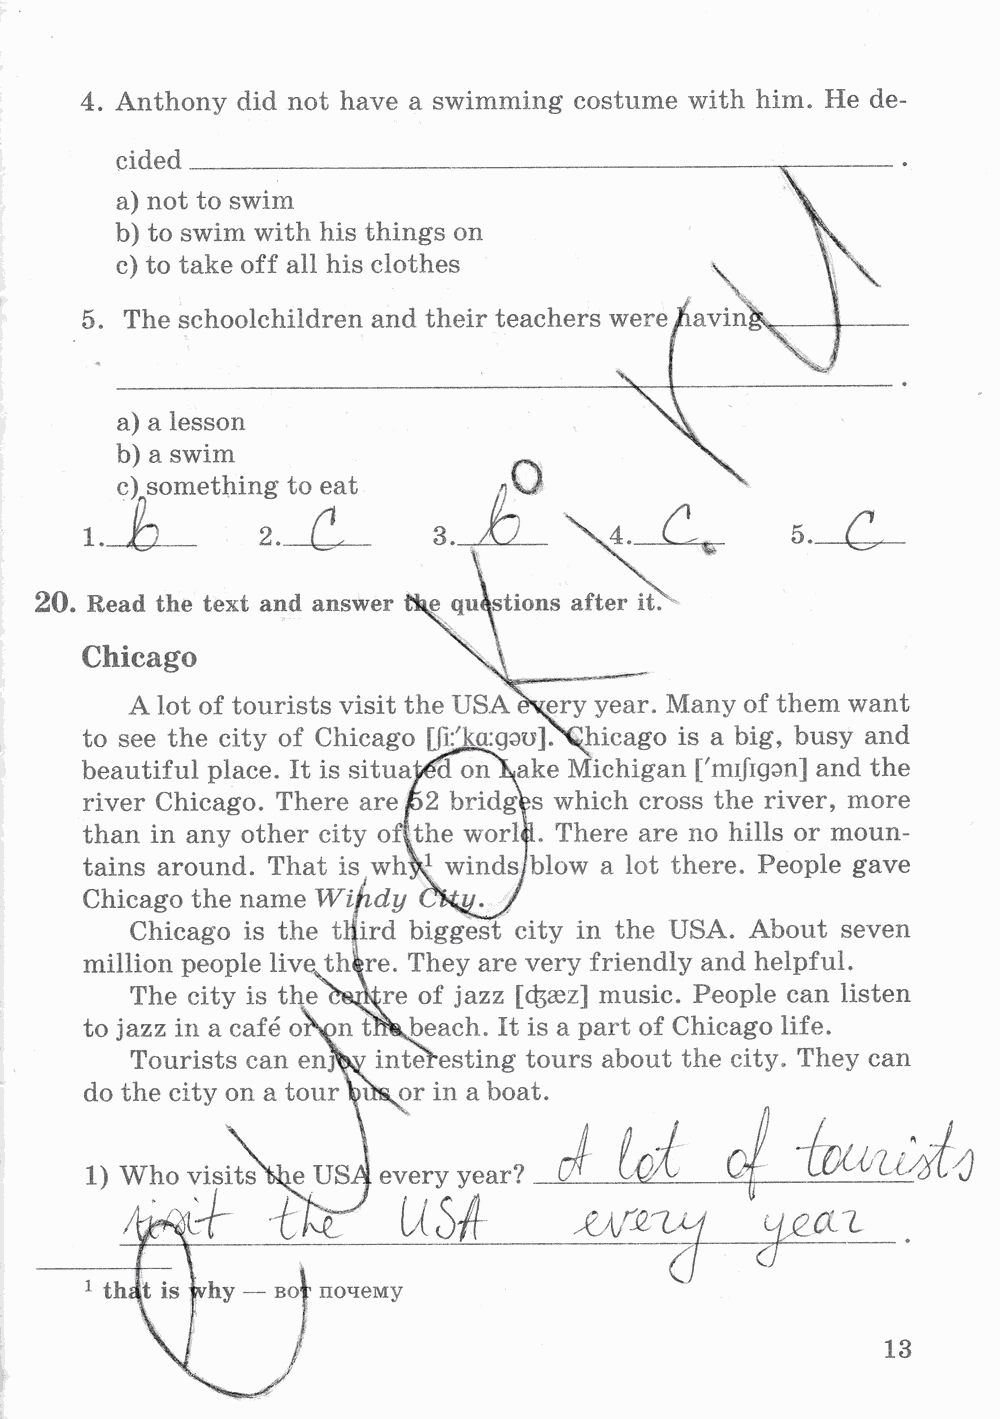 4. Anthony did not have a swimming costume with him. He de-
cided ___ .
a) not to swim
b) to swim with his things on
c) to take off all his clothes
5. The schoolchildren and their teachers were having ___
___ .
a) a lesson
b) a swim
c) something to eat
1. b 2. c 3. b 4. c. 5. c
20. Read the text and answer the questions after it.
Chicago
A lot of tourists visit the USA every year. Many of them want
to see the city of Chicago [ʃiːˈkɑːgəʊ]. Chicago is a big, busy and
beautiful place. It is situated on Lake Michigan [ˈmɪʃɪgən] and the
river Chicago. There are 52 bridges which cross the river, more
than in any other city of the world. There are no hills or moun-
tains around. That is why¹ winds blow a lot there. People gave
Chicago the name Windy City.
Chicago is the third biggest city in the USA. About seven
million people live there. They are very friendly and helpful.
The city is the centre of jazz [ʤæz] music. People can listen
to jazz in a café or on the beach. It is a part of Chicago life.
Tourists can enjoy interesting tours about the city. They can
do the city on a tour bus or in a boat.
1) Who visits the USA every year? A lot of tourists
visit the USA every year .
¹ that is why — вот почему
13